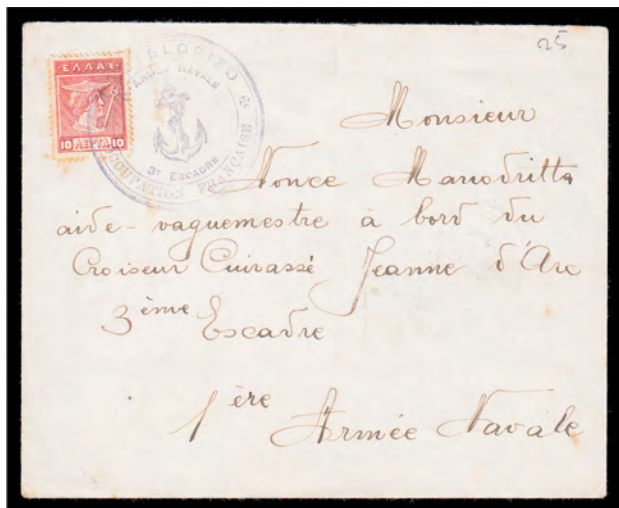 25
ΕΛΛΑΣ
10 ΛΕΠΤΑ 10
ARMÉE NAVALE
3e ESCADRE
OCCUPATION FRANÇAISE
Monsieur
Nonce Manodritta
aide-vaguemestre à bord du
Croiseur Cuirassé Jeanne d'Arc
3ème Escadre
1ère Armée Navale